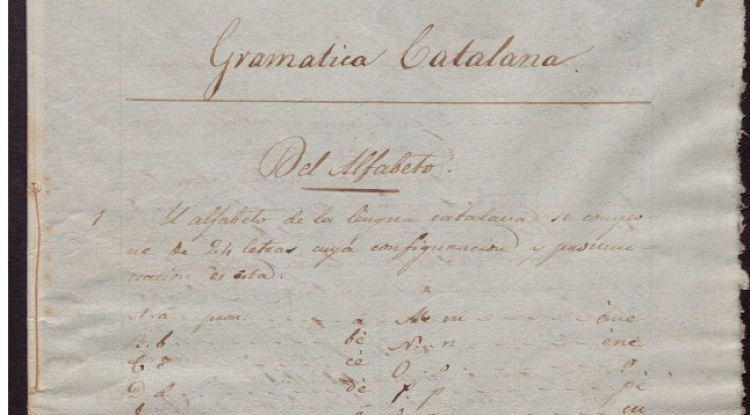 Gramatica Catalana
Del Alfabeto.
1 El alfabeto de la lengua catalana se compo-
ne de 24 letras, cuya configuracion y pronun-
ciación es esta:
A. a pron. a M. m
B. b bè N. n ène
C. c cè O. o o
D. d dè P. p pè